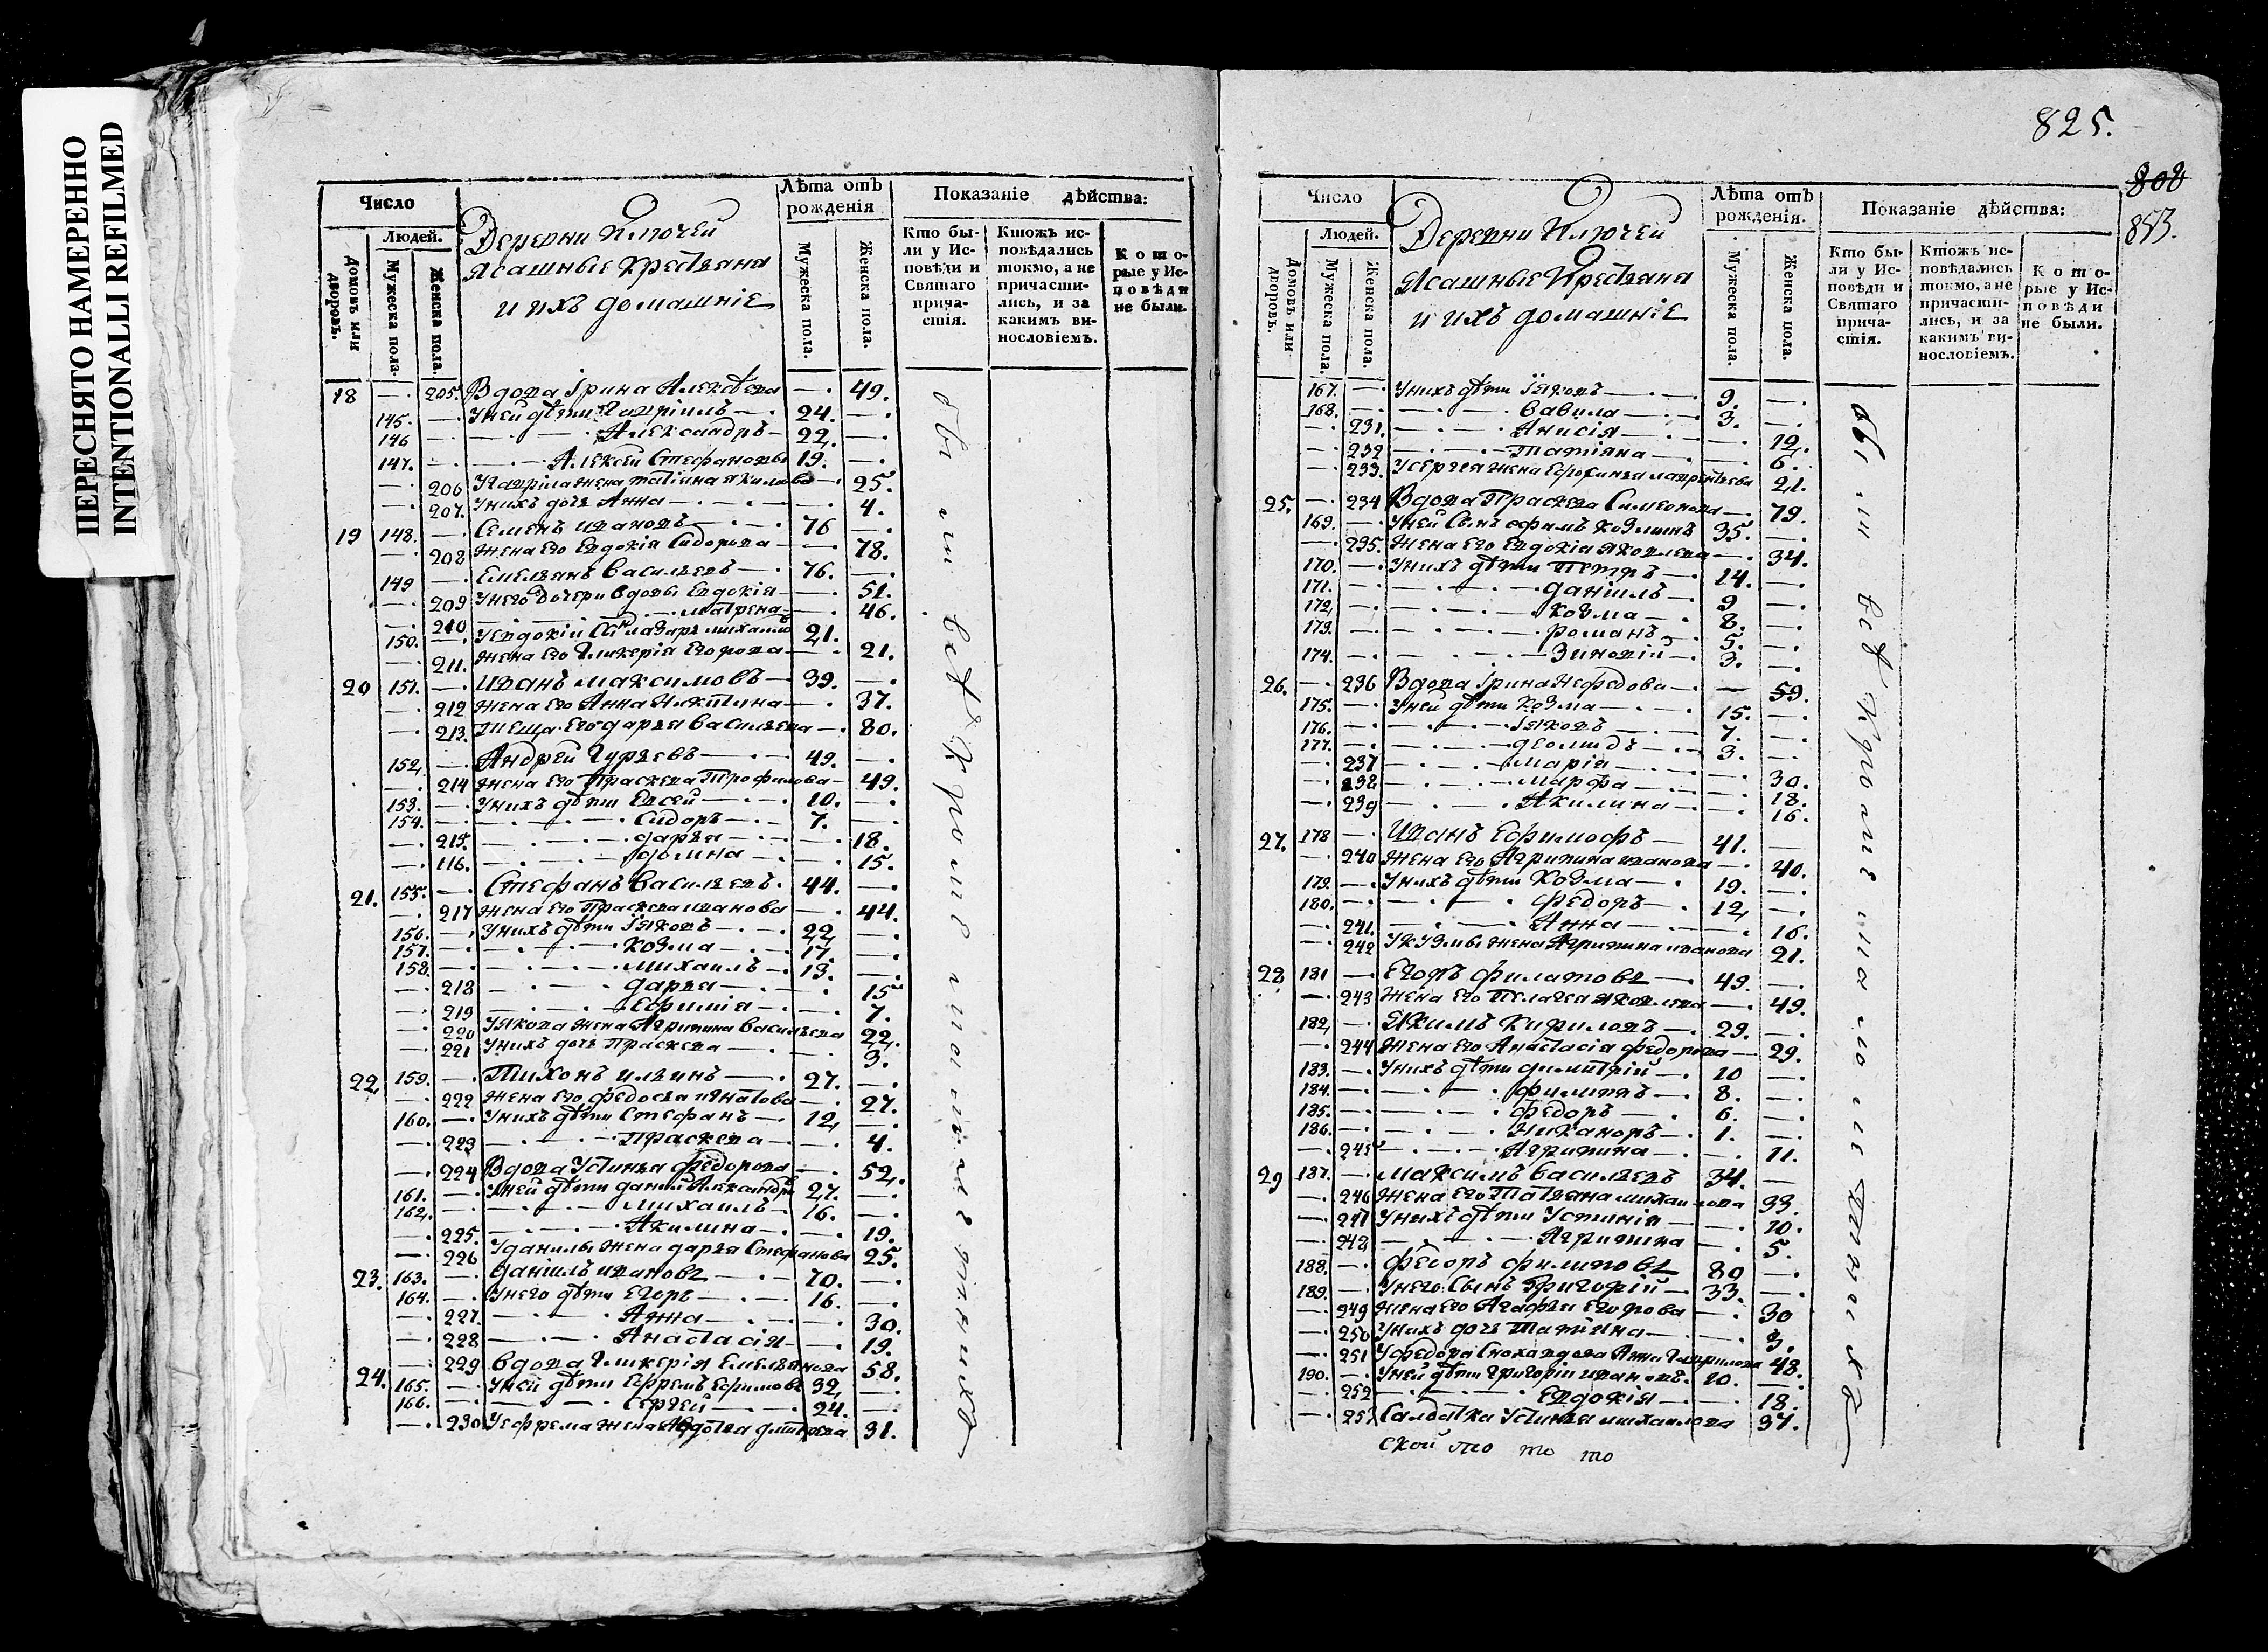 ПЕРЕСНЯТО НАМЕРЕННО
INTENTIONALLI REFILMED
Число
Людей.
Домовъ или дворовъ.
Мужеска пола.
Женска пола.
Деревни Ключей
Ясашные Крестьяна
и ихъ домашніе
Лѣта отъ рожденія
Мужеска пола.
Женска пола.
Показаніе дѣйства:
Кто бы-
ли у Ис-
повѣди и
Святаго
прича-
стія.
Ктожъ ис-
повѣдались
токмо, а не
причасти-
лись, и за
какимъ ви-
нословіемъ.
Кото-
рые у Ис-
повѣди
не были.
18 —. 205. Вдова Ірина Алексѣева —. 49.
145. —. У ней дѣти Гавріилъ —. 24. —.
146 —. Александръ — 22. —.
147. —. Алексей Стефановы 19. —.
—. 206 У Гаврила жена Татіана Якимова —. 25.
—. 207. У нихъ дочь Анна —. —. 4.
19 148. —. Семенъ Ивановъ —. 76 —.
—. 208 Жена его Евдокія Сидорова —. 78.
149 —. Емельянъ Васильевъ —. 76. —.
—. 209 У него дочери вдовы Евдокія — —. 51.
—. 210 — Матрена — —. 46.
150. —. У Евдокіи Сынъ Лазарь Михаиловъ 21. —.
—. 211. Жена его Гликерія Егорова —. 21.
20 151. —. Иванъ Максимовъ — 39. —.
—. 212 Жена его Анна Никитина —. 37.
—. 213. Теща его Дарья Васильева —. 80.
152. —. Андрей Гурьевъ —. 49. —.
—. 214 Жена его Праскева Трофимова — 49.
153. —. У нихъ дѣти Евсей —. 10. —.
154. —. Сидоръ —. 7. —.
—. 215. Дарья —. —. 18.
—. 116. Домна —. —. 15.
21. 155. —. Стефанъ Васильевъ. 44. —.
—. 217 Жена его Праскева Иванова —. 44.
156. —. У нихъ дѣти Іяковъ —. 22. —.
157. —. Козма —. 17. —.
158. —. Михаилъ —. 13. —.
—. 218 Дарья —. —. 15
—. 219 Ефимія —. —. 7.
—. 220 У Якова жена Агрипина Васильева 22.
—. 221 У нихъ дочь Праскева —. —. 3.
22. 159. —. Тихонъ Ильинъ —. 27. —.
—. 222 Жена его Федосья Игнатова —. 27.
160. —. У нихъ дѣти Стефанъ —. 12. —.
—. 223 Праскева —. —. 4.
—. 224 Вдова Устинья Федорова —. 52.
161. —. У ней дѣти Данилъ Александровъ 27. —.
162. —. Михаилъ —. 16. —.
—. 225. Акилина —. —. 19.
—. 226 У Данилы жена Дарья Стефанова 25.
23. 163. —. Даніилъ Ивановъ —. 70. —.
164. —. У него дѣти Егоръ —. 16. —.
—. 227. Анна —. —. 30.
—. 228 Анастасія —. —. 19.
24. —. 229 Вдова Гликерія Емельянова 58.
165. —. У ней дѣти Ефремъ Ефимовъ 32. —.
166. —. Сергей —. 24. —.
—. 230 У Ефрема жена Авдотья Дмитрева 31.
были всѣ кромѣ
825.
808
853.
Число
Людей.
Домовъ или дворовъ.
Мужеска пола.
Женска пола.
Деревни Ключей
Ясашные Крестьяна
и ихъ домашніе
Лѣта отъ рожденія.
Мужеска пола.
Женска пола.
Показаніе дѣйства:
Кто бы-
ли у Ис-
повѣди и
Святаго
прича-
стія.
Ктожъ ис-
повѣдались
токмо, а не
причасти-
лись, и за
какимъ ви-
нословіемъ.
Кото-
рые у Ис-
повѣди
не были.
167. —. У нихъ дѣти Іяковъ —. 9. —.
168. —. Вавила —. 3. —.
—. 231. Анисія —. —. 12.
—. 232 Татіяна —. —. 6.
—. 233. У Сергея жена Ефросинья Лаврентьева 21.
25. —. 234 Вдова Праскева Симеонова —. 79.
169. —. У ней Сынъ Ефимъ Козминъ 35. —.
—. 235. Жена его Евдокія Яковлева —. 34.
170. —. У нихъ дѣти Петръ —. 14. —.
171. —. Даніилъ —. 9 —.
172. —. Козма —. 8. —.
173. —. Романъ —. 5. —.
174. —. Зиновій —. 3. —.
26. —. 236 Вдова Ірина Нефедова —. — 59.
175. —. У ней дѣти Козма —. 15. —.
176. —. Іяковъ —. 7. —.
177. —. Деомидъ —. 3. —.
—. 237 Марія —. —. 30.
—. 238 Марфа —. —. 18.
—. 239 Акилина —. —. 16.
27. 178 —. Иванъ Ефимофъ — 41. —.
—. 240 Жена его Агрипина Иванова —. 40.
179. —. У нихъ дѣти Козма —. 19. —.
180. —. Федоръ —. 12. —.
—. 241. Анна —. —. 16.
—. 242 У Кузмы жена Агрипина Иванова 21.
28 181 —. Егоръ Филатовъ —. 49. —.
—. 243 Жена его Пелагея Яковлева —. 49.
182. —. Якимъ Кириловъ —. 29. —.
—. 244 Жена его Анастасія Федорова — 29.
183. —. У нихъ дѣти Димитрій —. 10 —.
184. —. Филиппъ —. 8. —.
185. —. Федоръ —. 6. —.
186. —. Никаноръ —. 1. —.
—. 245 Агрипина —. —. 11.
29 187. —. Максимъ Васильевъ 34. —.
—. 246 Жена его Татьяна Михаилова 33.
—. 247 У нихъ дѣти Устинія —. —. 10.
—. 248 Агрипина —. 5.
188. —. Федоръ Филиповъ 80 —.
189. —. У него Сынъ Григорій —. 33. —.
—. 249 Жена его Агафья Егорова —. 30
—. 250 У нихъ дочь Татіяна —. —. 3.
—. 251 У Федора Сноха вдова Анна Гаврилова 48.
190. —. У ней дѣти Григорій Ивановъ. 10. —.
—. 252 Евдокія —. —. 18.
—. 253 Салдатка Устинья Михаилова 37.
ской то то то